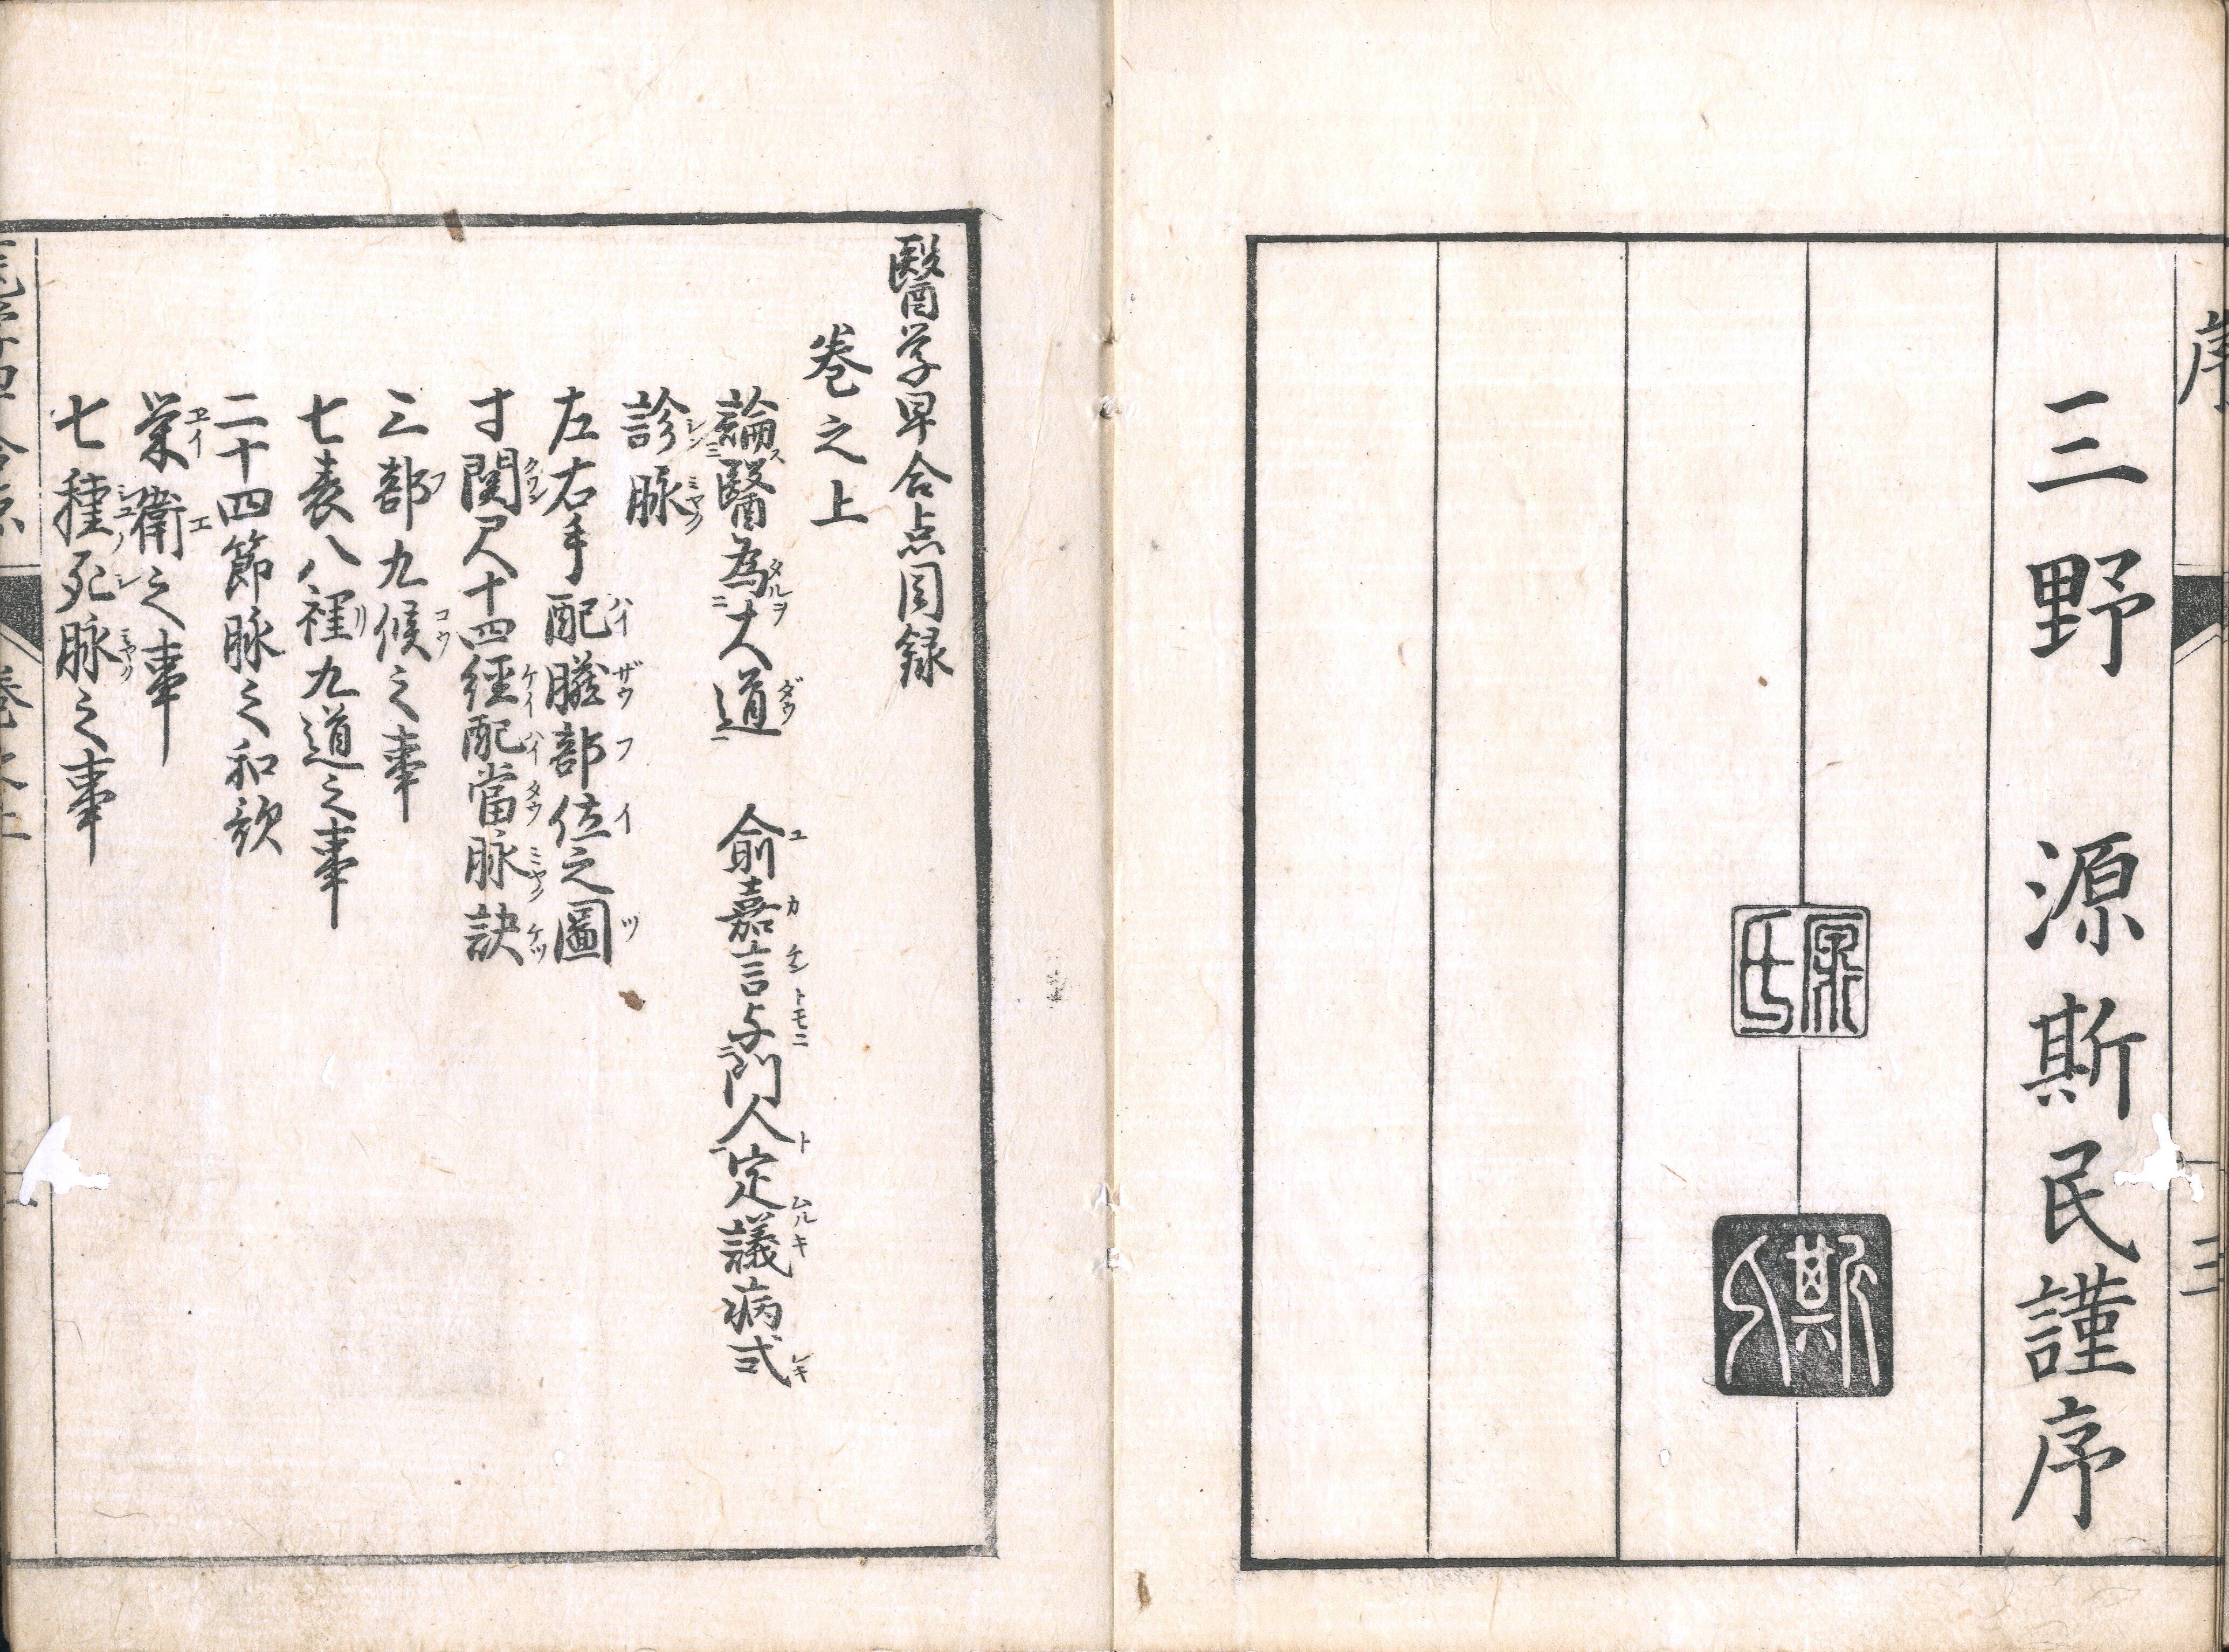 序
三
三野　源斯民謹序
源氏
斯人
醫学早合点目録
巻之上
論醫為大道　俞嘉言与門人定議病式
診脉
左右手配臓部位之圖
寸関尺十四經配當脉訣
三部九候之事
七表八裡九道之事
二十四節脉之和歌
栄衛之事
七種死脉之事